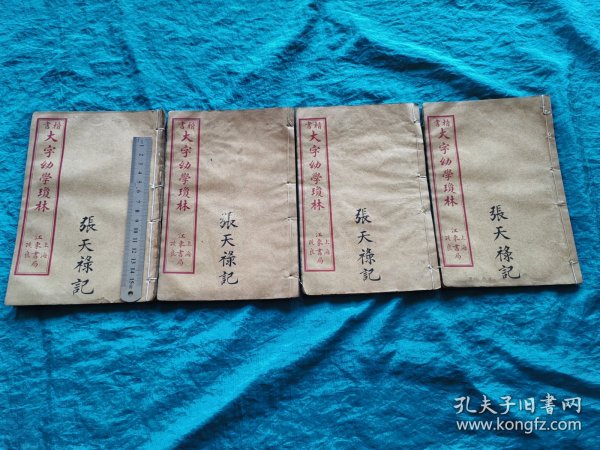 楷書
大字幼學瓊林
上海
江東書局
改良
張天祿記
楷書
大字幼學瓊林
上海
江東書局
改良
張天祿記
楷書
大字幼學瓊林
上海
江東書局
改良
張天祿記
楷書
大字幼學瓊林
上海
江東書局
改良
張天祿記
孔夫子旧書网
www.kongfz.com